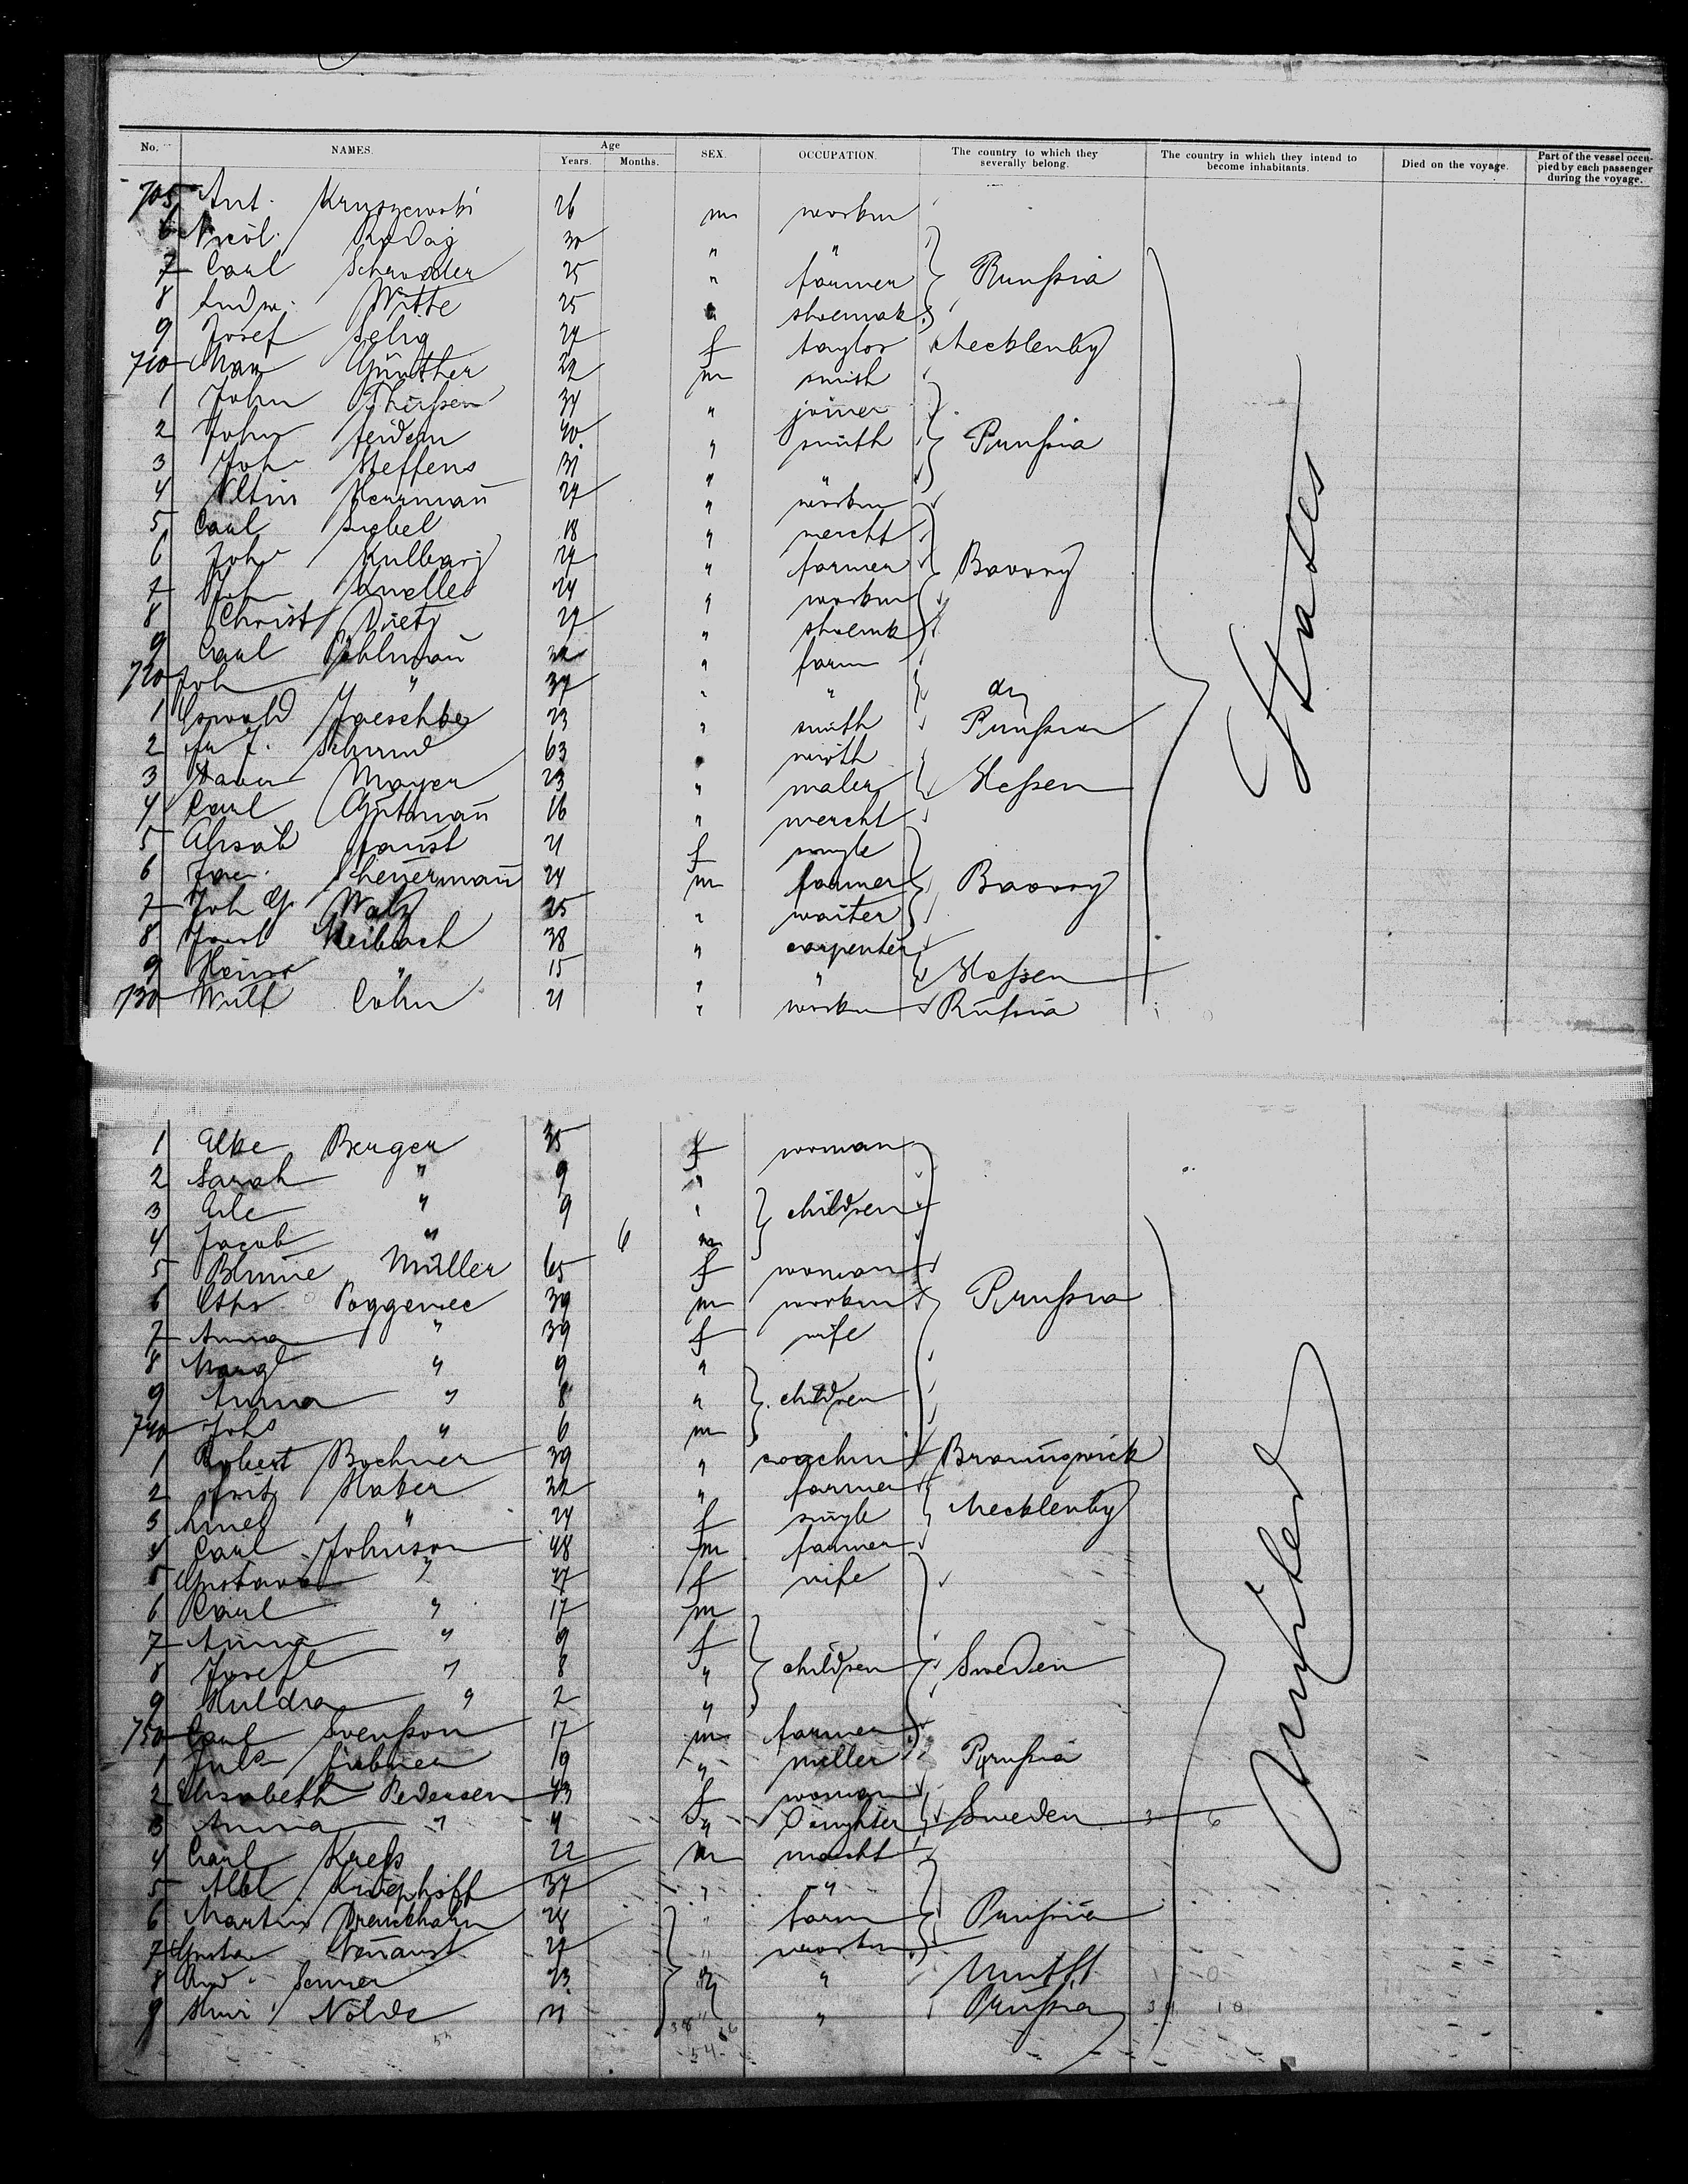 No. NAMES. Age Years. Months. SEX. OCCUPATION. The country to which they severally belong. The country in which they intend to become inhabitants. Died on the voyage. Part of the vessel occupied by each passenger during the voyage.
705 Ant. Kruszewski 26 m workm
6 Nicol. 30 " "
7 Carl Schroder 25 " farmer Prussia
8 Ludw. Witte 25 " shoemak
9 Josef Selig 27 f taylor Mecklenbg
710 Max Günther 22 m smith
1 John Thiessen 34 " joiner
2 John 40 " smith Prussia
3 Joh Steffens 31 " "
4 Herrmañ 27 " workm
5 Carl Siebel 18 " mercht
6 Joh 27 " farmer Bavory
7 Joh 24 " workm
8 Christ Dietz 27 " shoemk
9 Carl Pöhlmañ " farm
720 Joh " 37 " " do
1 Oswald Jaeschke 23 " smith Prussia
2 Schmid 63
3 Xaver Mayer 23 " maler Hessen
4 Carl Gutmañ 16 " mercht
5 Faust 21 f single
6 Scheuermañ 24 m farmer Bavory
7 Joh G. Walz 25 " waiter
8 38 " carpenter
9 " 15 " " Hessen
730 Wulf Cohn 21 " workm Russia
1 Elke Berger 35 f woman
2 Sarah " 9 "
3 " 9 " children
4 Jacob " 6 m
5 Blume Müller 65 f woman
6 39 m workm Prussia
7 Anna " 39 f wife
8 Margt " 9 "
9 Anna " 8 " children
740 Johs " 6 m
1 Robert Bochner 39 " coachm Braunswick
2 Fritz Haker 22 " farmer
3 " 24 f single Mecklenbg
4 Carl Johnson 48 m farmer
5 Gustava " 47 f wife
6 Carl " 17 m
7 Anna " 9 f
8 Josefl " 8 " children Sweden
9 Huldra " 2 "
750 Carl Svensson 17 m farmer
1 Juls 19 " miller Prussia
2 Elisabeth Pedersen 43 f woman
3 Anna " 4 " Daughter Sweden 3 6
4 Carl Kress 22 m mercht
5 37 " "
6 Martin 28 " farm Prussia
7 Gustav 27 " workm
8 23 " "
9 Nolde 21 " " Prussia
States
United